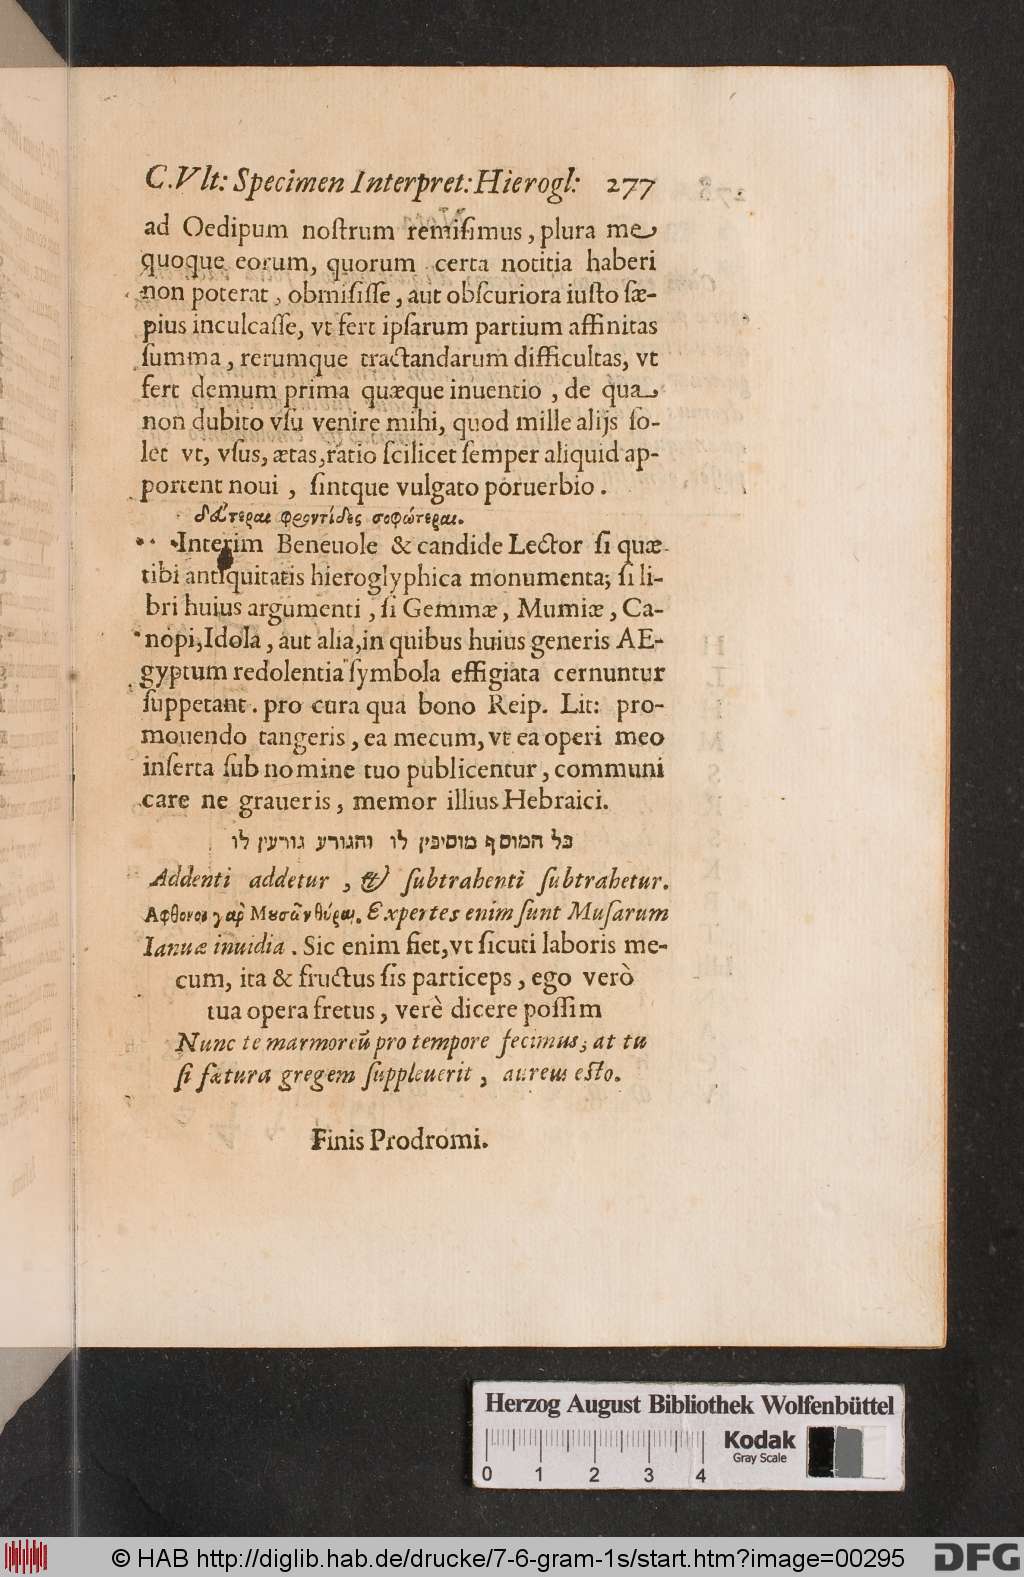 C.Vlt: Specimen Interpret: Hierogl: 277
ad Oedipum noſtrum remiſimus, plura me
quoque eorum, quorum certa notitia haberi
non poterat, obmiſiſſe, aut obſcuriora iuſto ſæ-
pius inculcaſſe, vt fert ipſarum partium affinitas
ſumma, rerumque tractandarum difficultas, vt
fert demum prima quæque inuentio, de qua
non dubito vſu venire mihi, quod mille alijs ſo-
let vt, vſus, ætas, ratio ſcilicet ſemper aliquid ap-
portent noui, ſintque vulgato poruerbio.
δεύτεραι φροντίδες σοφώτεραι.
Interim Beneuole & candide Lector ſi quæ
tibi antiquitatis hieroglyphica monumenta; ſi li-
bri huius argumenti, ſi Gemmæ, Mumiæ, Ca-
nopi, Idola, aut alia, in quibus huius generis AE-
gyptum redolentia ſymbola effigiata cernuntur
ſuppetant. pro cura qua bono Reip. Lit: pro-
mouendo tangeris, ea mecum, vt ea operi meo
inſerta ſub nomine tuo publicentur, communi
care ne graueris, memor illius Hebraici.
כל המוסף מוסיפין לו והגורע גורעין לו
Addenti addetur, & ſubtrahenti ſubtrahetur.
Αφθονοι γαρ̀ Μουσῶν θύραι. Expertes enim ſunt Muſarum
Ianuæ inuidia. Sic enim fiet, vt ſicuti laboris me-
cum, ita & fructus ſis particeps, ego verò
tua opera fretus, verè dicere poſſim
Nunc te marmoreũ pro tempore fecimus; at tu
ſi fætura gregem ſuppleuerit, aureus eſto.
Finis Prodromi.
Herzog August Bibliothek Wolfenbüttel
0 1 2 3 4
Kodak
Gray Scale
© HAB http://diglib.hab.de/drucke/7-6-gram-1s/start.htm?image=00295
DFG